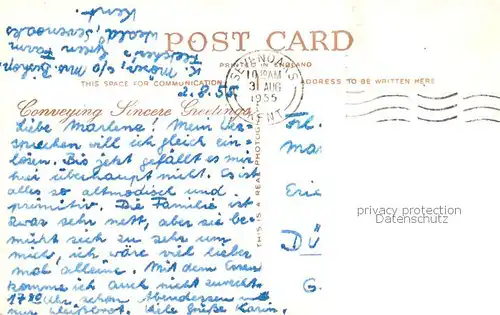 K. Mosir, c/o Mrs. Bishop,
Fletcher's Green Farm
Weald, Sevenoaks
Kent.
POST CARD
PRINTED IN ENGLAND
THIS SPACE FOR COMMUNICATION
ADDRESS TO BE WRITTEN HERE
SEVENOAKS
10 AM
3 AUG
1955
KENT
2.8.55.
Conveying Sincere Greetings
Liebe Marlene! Mein Ver-
sprechen will ich gleich ein-
lösen. Bis jetzt gefällt es mir
hier überhaupt nicht. Es ist
alles so altmodisch und
primitiv. Die Familie ist
zwar sehr nett, aber sie be-
müht sich zu sehr um
mich, ich wäre viel lieber
mal alleine. Mit dem Essen
komme ich auch nicht zurecht.
17 30 Uhr schon Abendessen und
nur Weißbrot. Liebe Grüße Karin.
THIS IS A REAL PHOTOGR
Frl.
Ma
Eric
DÜ
G
privacy protection
Datenschutz